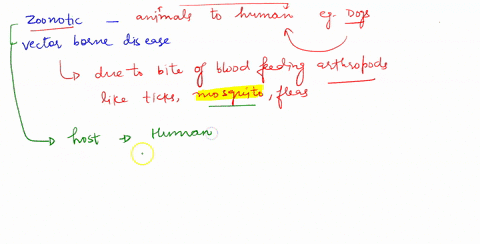 Zoonotic — animals to human eg. Dogs
vector borne disease
↳ due to bite of blood feeding arthropods
like ticks, mosquito, fleas
→ host → Human